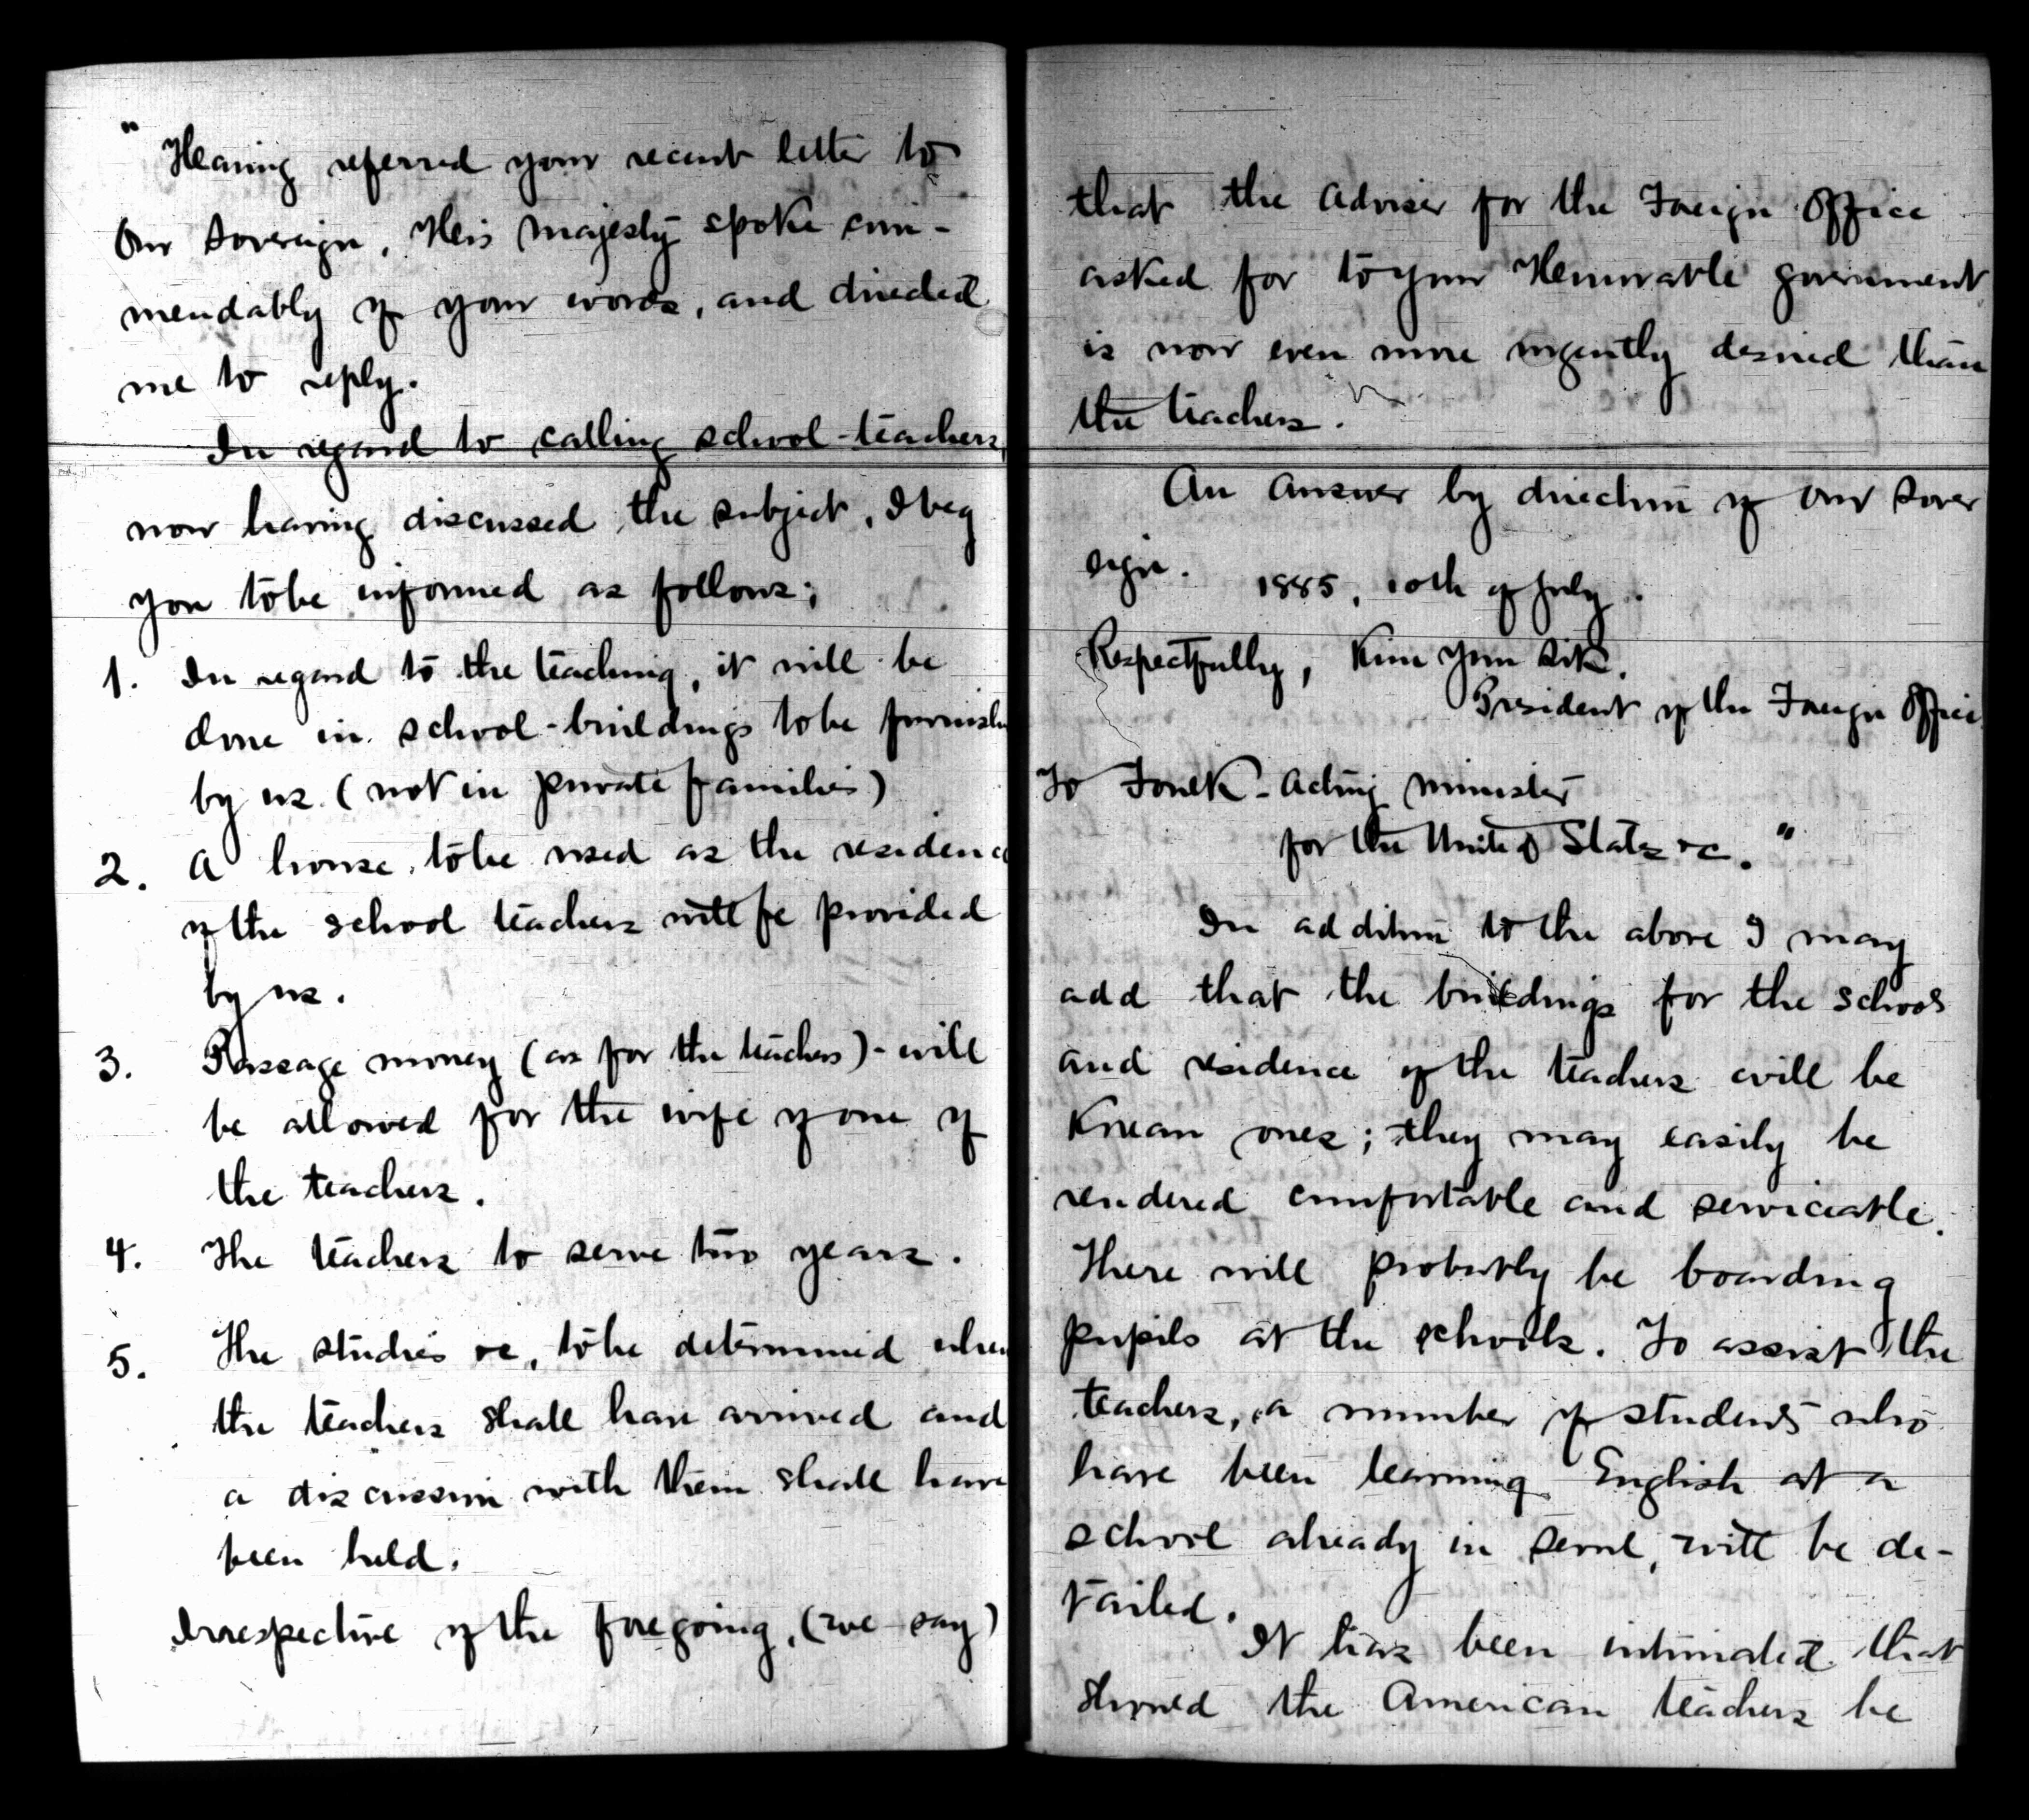 " Having referred your recent letter to
Our Sovereign, His Majesty spoke com-
mendably of your words, and directed
me to reply.
In regard to calling school-teachers,
now having discussed the subject, I beg
you to be informed as follows;
1. In regard to the teaching, it will be
done in school-buildings to be furnish
by us. (not in private families)
2. A house, to be used as the residence
of the school teachers will be provided
by us.
3. Passage money (as for the teachers) - will
be allowed for the wife of one of
the teachers.
4. The teachers to serve two years.
5. The studies &c, to be determined when
the teachers shall have arrived and
a discussion with them shall have
been held.
Irrespective of the foregoing, (we say)
that the Adviser for the Foreign Office
asked for to your Honorable government
is now even more urgently desired than
the teachers.
An answer by direction of Our Sover
eign. 1885, 10th of July.
Respectfully, Kim Yun Sik,
President of the Foreign Office
To Foulk - Acting Minister
for the United States &c. "
In addition to the above I may
add that the buildings for the school
and residence of the teachers will be
Korean ones; they may easily be
rendered comfortable and serviceable.
There will probably be boarding
pupils at the schools. To assist the
teachers, a number of students who
have been learning English at a
school already in Seoul, will be de-
tailed.
It has been intimated that
should the American teachers be